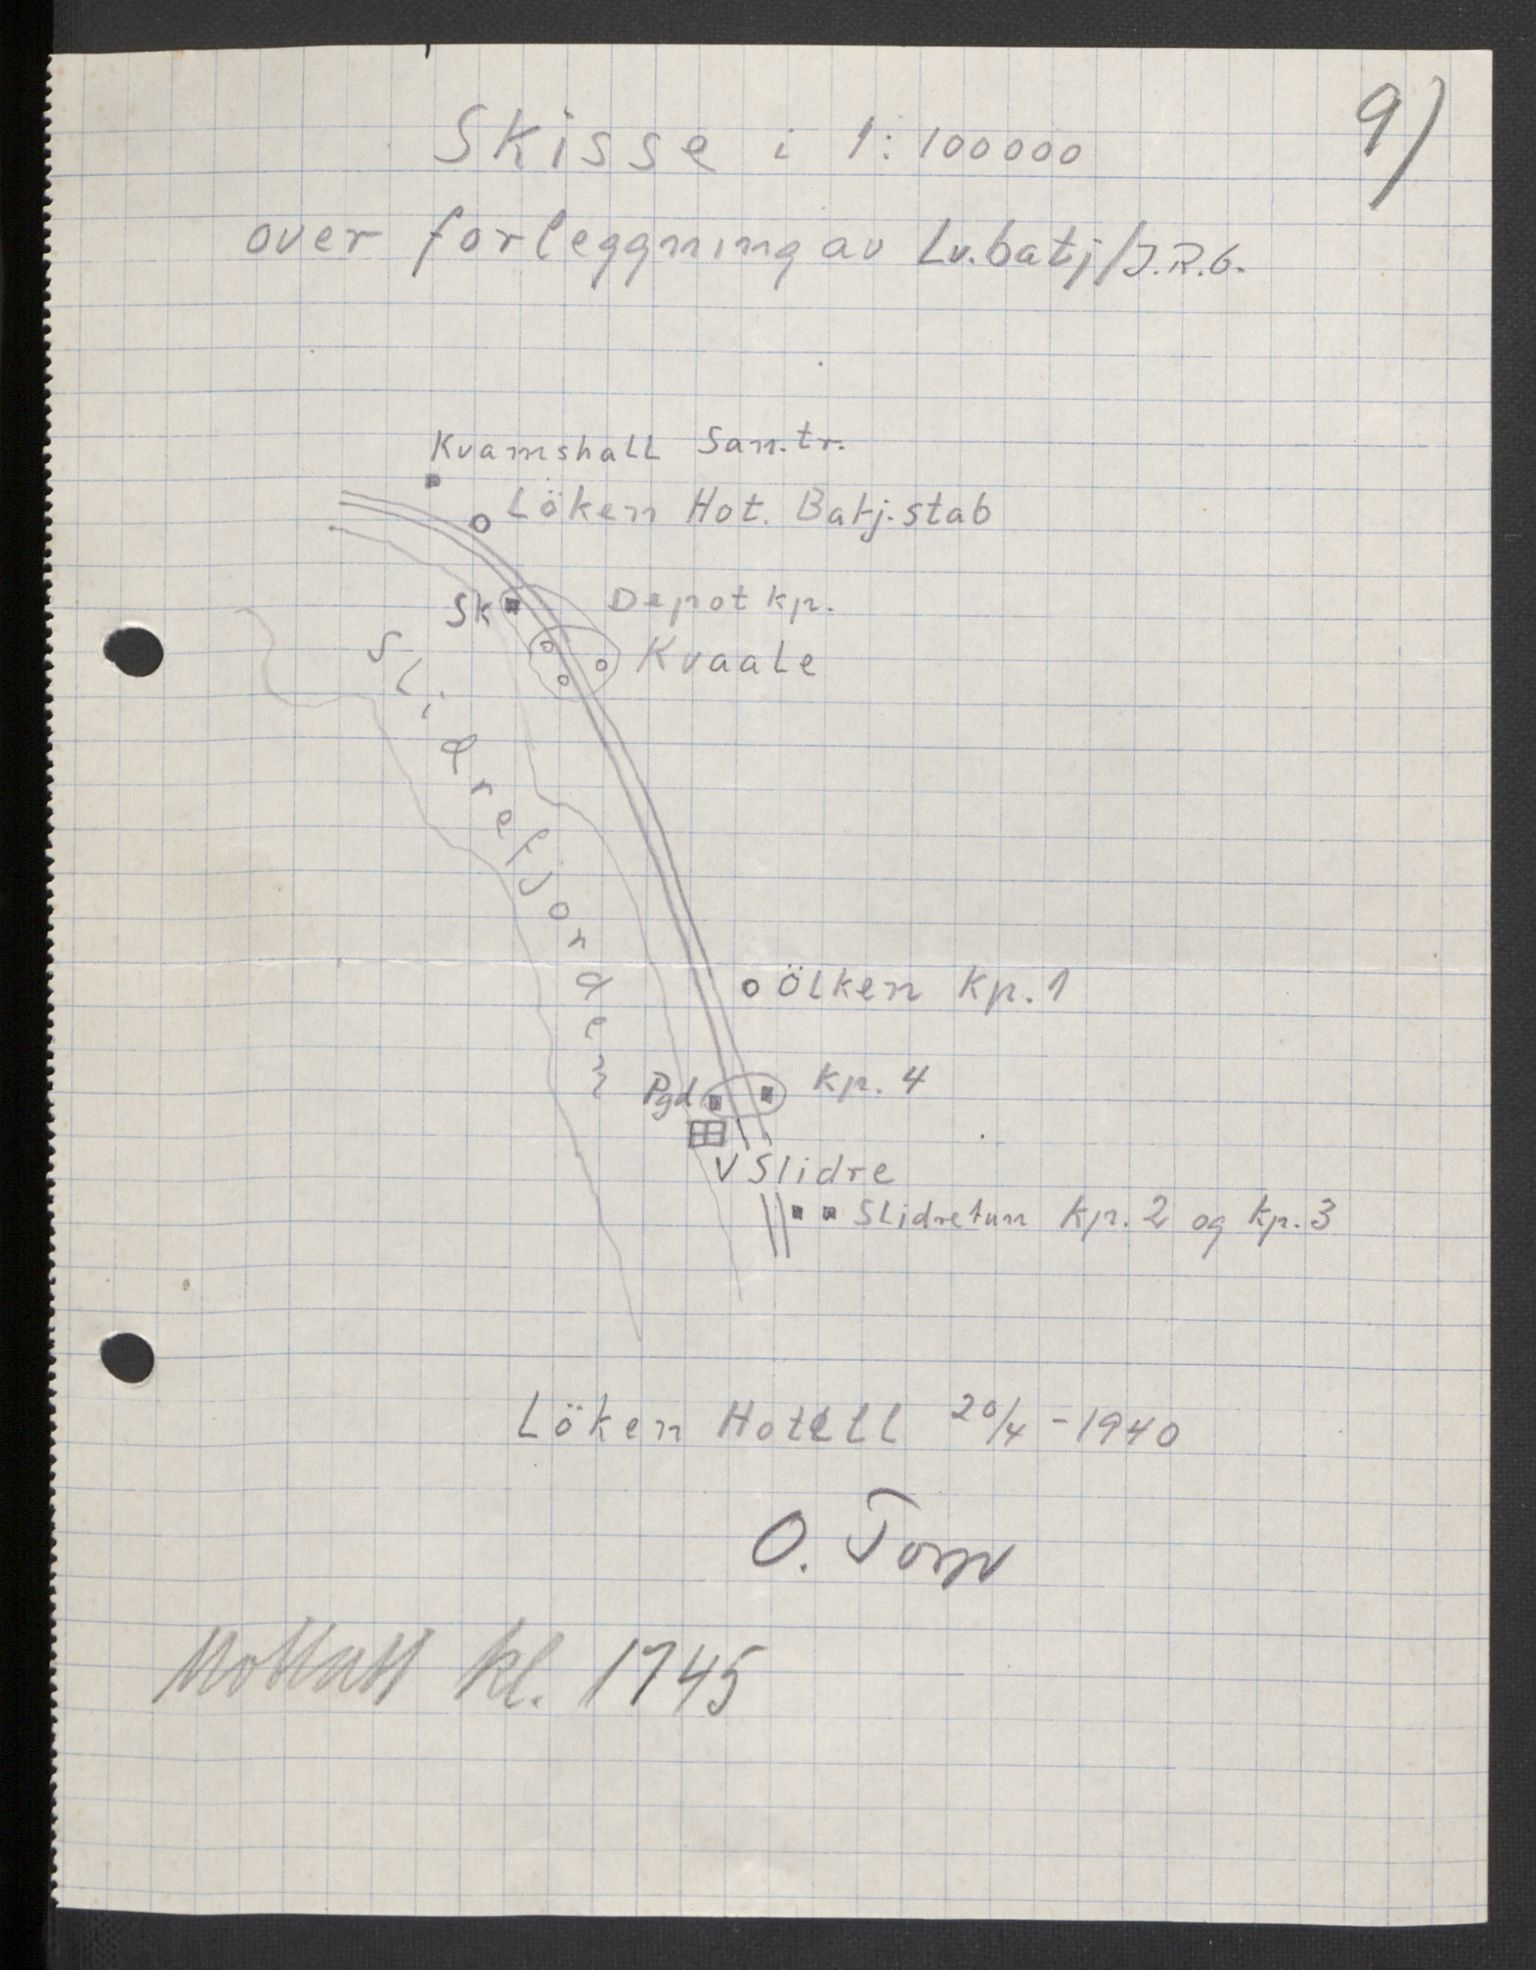 9)
Skisse i 1:100000
over forleggning av Lv.batj/J.R.6.
Kvamshall San.tr.
Löken Hot. Batj.stab
Sk
Depot kp.
Kvaale
Slidrefjorden
Ölken Kp.1
Pgd
Kp. 4
V Slidre
Slidretun Kp.2 og Kp.3
Löken Hotell 20/4-1940
O. Torp
Mottatt kl. 1745